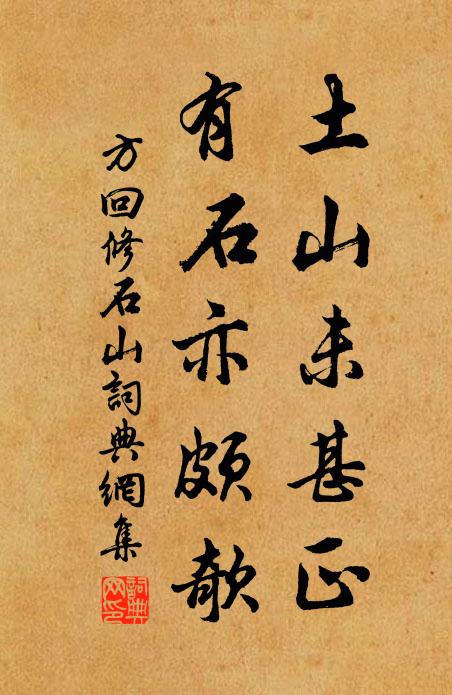 土山未甚正
有石亦頗欹
方回修石山詞典網集
詞典網印